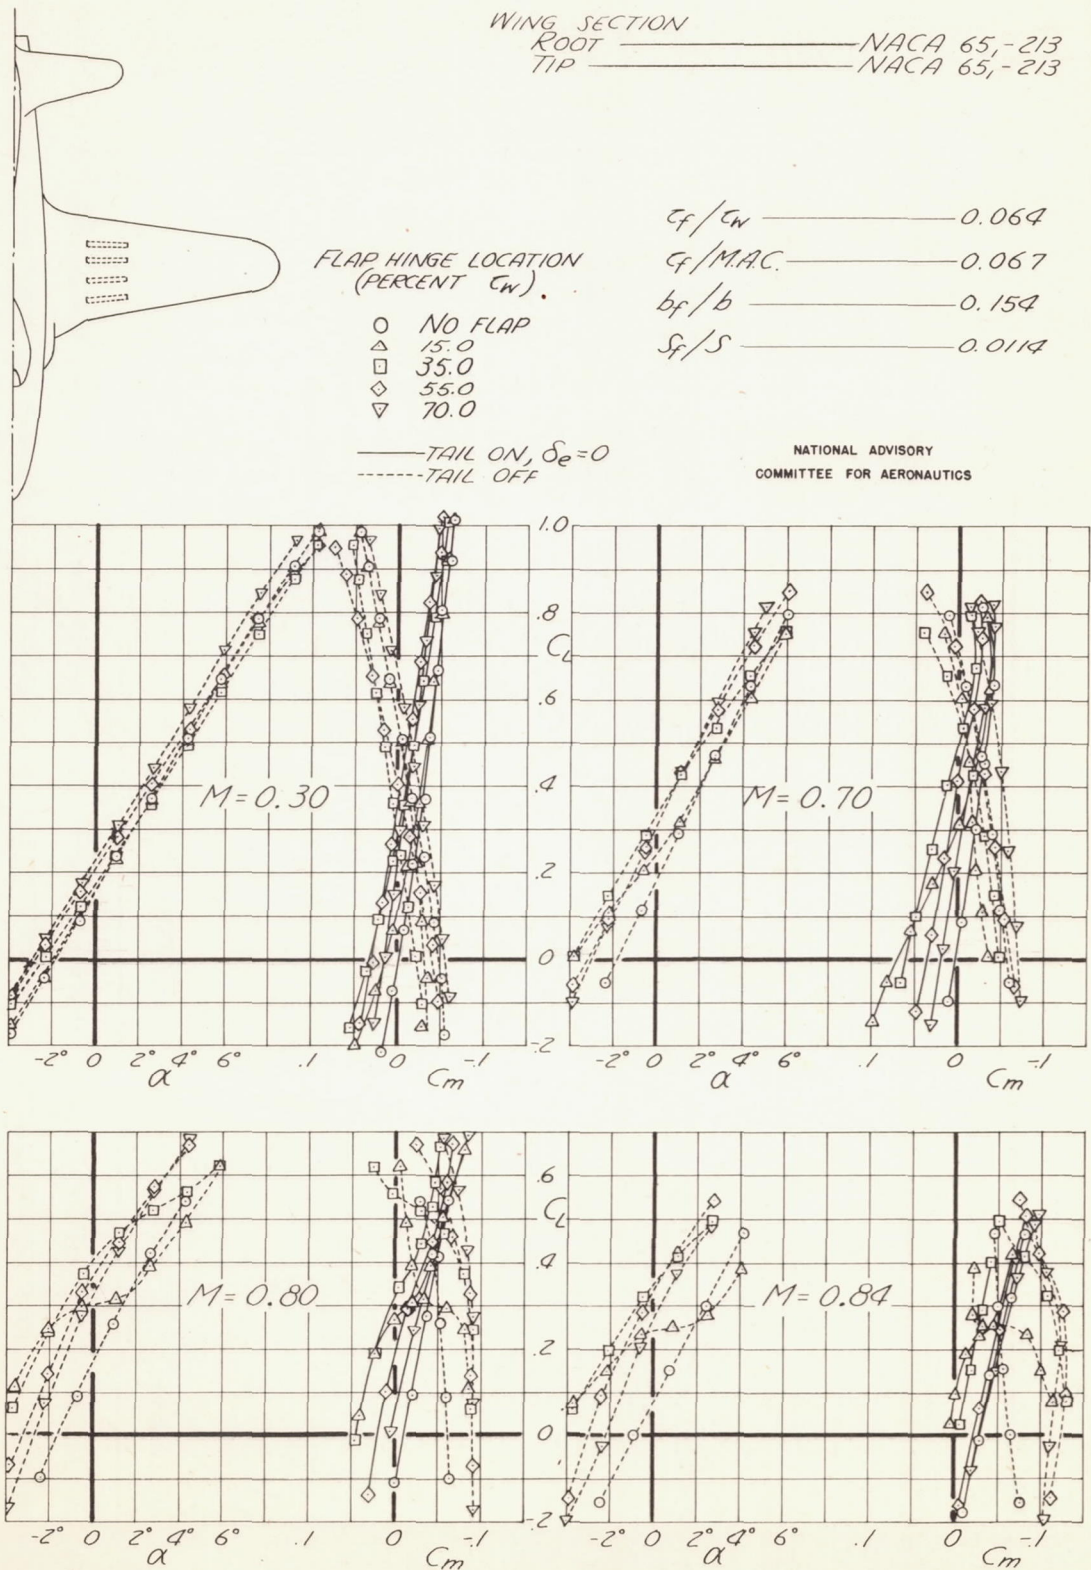 WING SECTION
ROOT NACA 65,-213
TIP NACA 65,-213
c̄f/c̄w 0.064
cf/M.A.C. 0.067
bf/b 0.154
Sf/S 0.0114
FLAP HINGE LOCATION
(PERCENT c̄w)
NO FLAP
15.0
35.0
55.0
70.0
TAIL ON, δe=0
TAIL OFF
NATIONAL ADVISORY
COMMITTEE FOR AERONAUTICS
1.0
.8
CL
.6
M=0.30
.4
M=0.70
.2
0
-.2
-2° 0 2° 4° 6° .1 0 -.1
α Cm
-2° 0 2° 4° 6° .1 0 -.1
α Cm
.6
CL
.4
M=0.80
M=0.84
.2
0
-.2
-2° 0 2° 4° 6° .1 0 -.1
α Cm
-2° 0 2° 4° 6° .1 0 -.1
α Cm